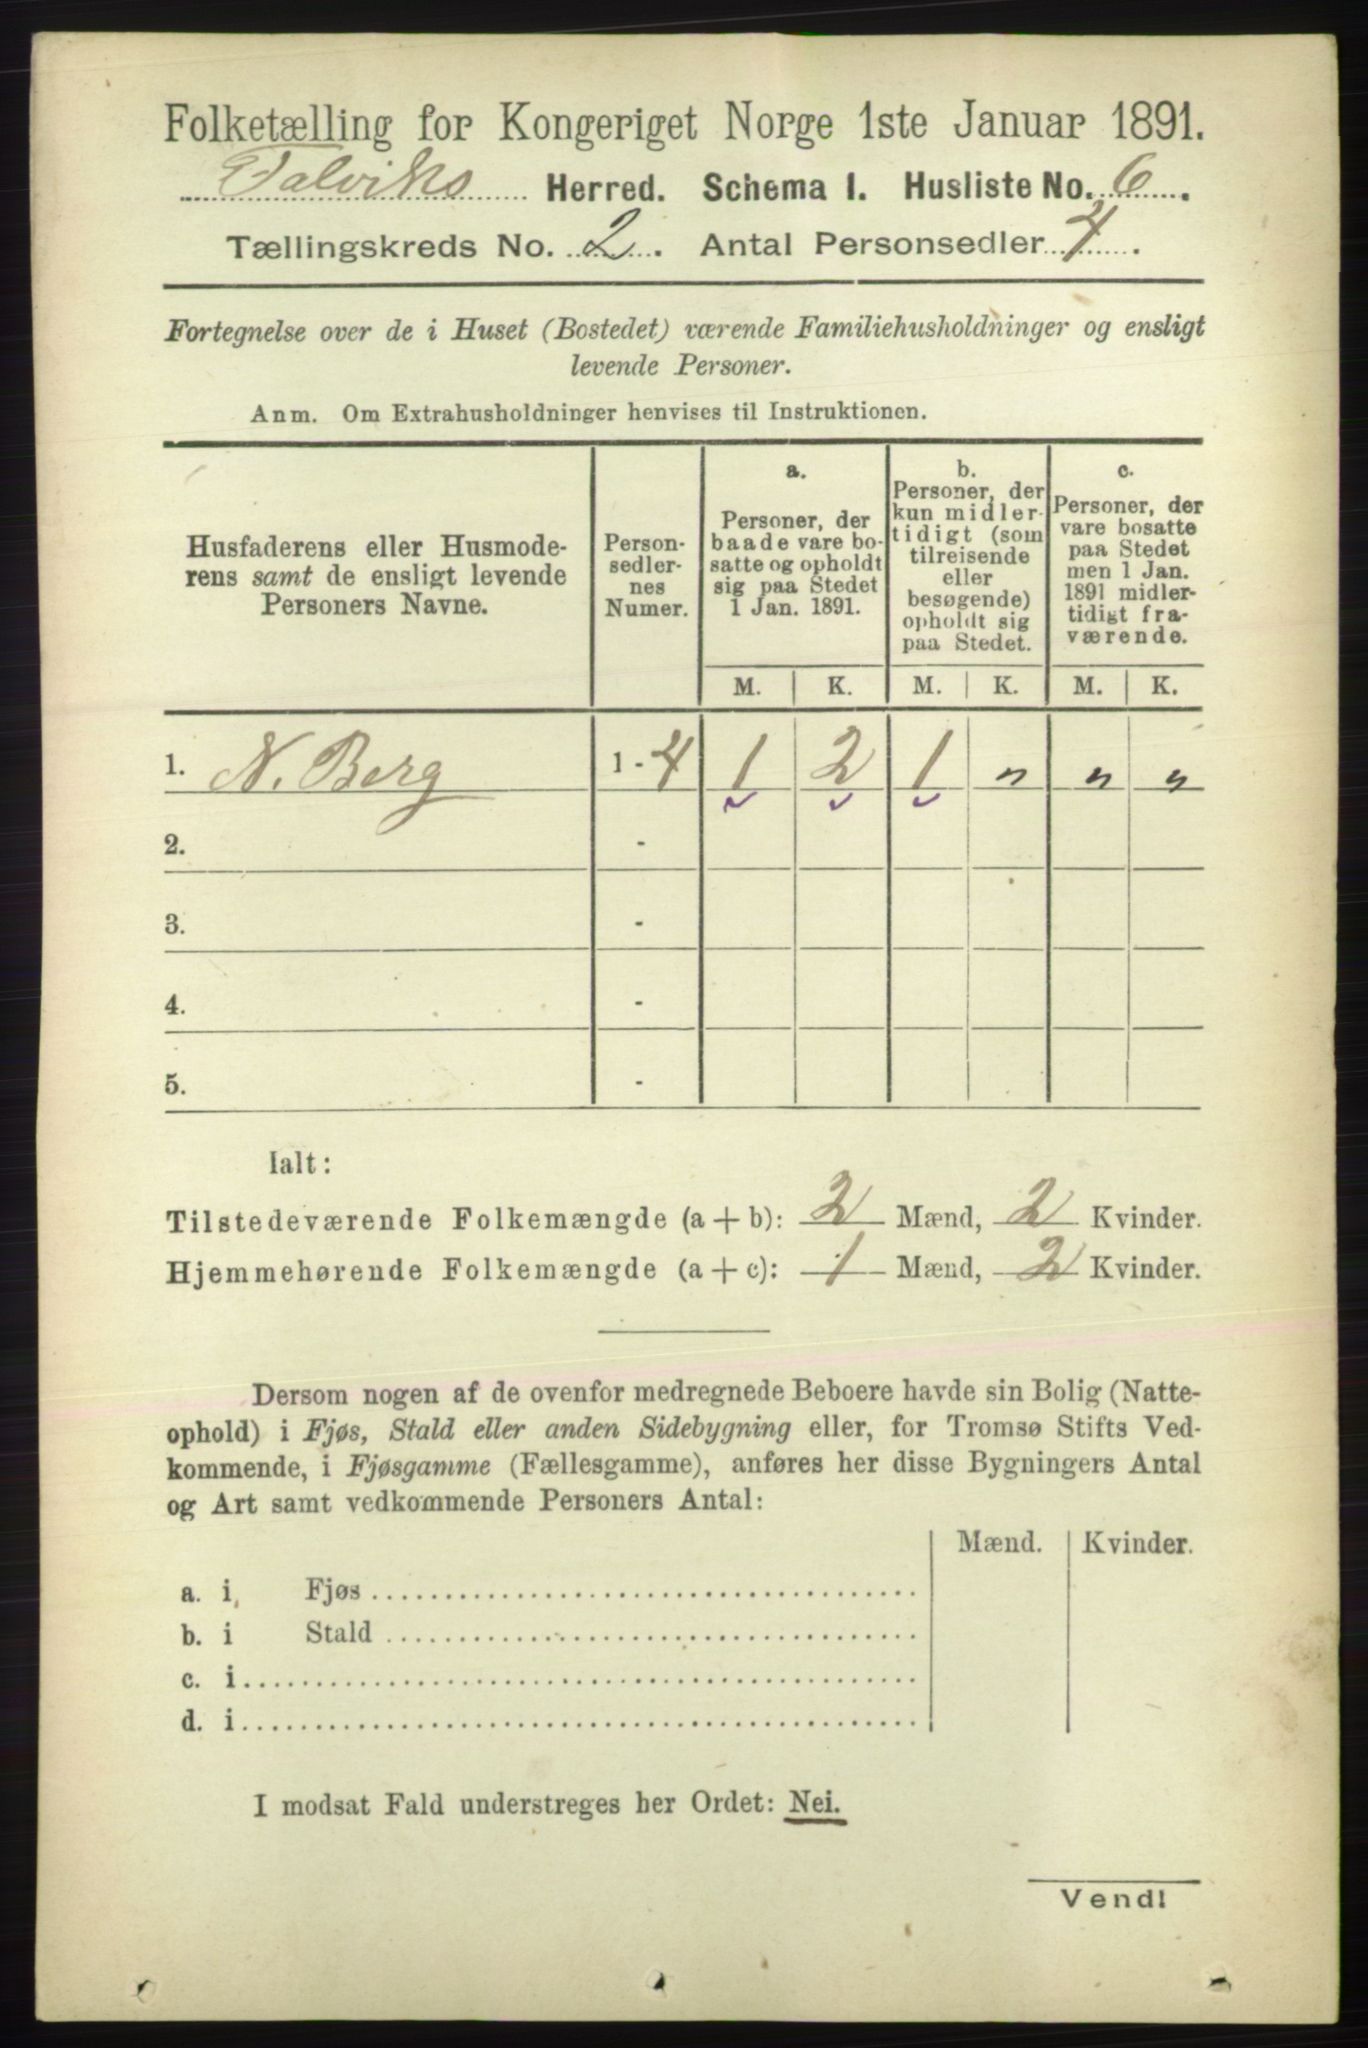 Folketælling for Kongeriget Norge 1ste Januar 1891.
Talviks Herred. Schema I. Husliste No. 6.
Tællingskreds No. 2. Antal Personsedler 4.
Fortegnelse over de i Huset (Bostedet) værende Familiehusholdninger og ensligt
levende Personer.
Anm. Om Extrahusholdninger henvises til Instruktionen.
Husfaderens eller Husmode-
rens samt de ensligt levende
Personers Navne.
Person-
sedler-
nes
Numer.
a.
Personer, der
baade vare bo-
satte og opholdt
sig paa Stedet
1 Jan. 1891.
b.
Personer, der
kun midler-
tidigt (som
tilreisende
eller
besøgende)
opholdt sig
paa Stedet.
c.
Personer, der
vare bosatte
paa Stedet
men 1 Jan.
1891 midler-
tidigt fra-
værende.
M. K. M. K. M. K.
1. N. Berg 1 - 4 1 2 1 " " "
2. -
3. -
4. -
5. -
Ialt:
Tilstedeværende Folkemængde (a + b): 2 Mænd, 2 Kvinder.
Hjemmehørende Folkemængde (a + c): 1 Mænd, 2 Kvinder.
Dersom nogen af de ovenfor medregnede Beboere havde sin Bolig (Natte-
ophold) i Fjøs, Stald eller anden Sidebygning eller, for Tromsø Stifts Ved-
kommende, i Fjøsgamme (Fællesgamme), anføres her disse Bygningers Antal
og Art samt vedkommende Personers Antal:
Mænd. Kvinder.
a. i Fjøs
b. i Stald
c. i
d. i
I modsat Fald understreges her Ordet: Nei.
Vend!